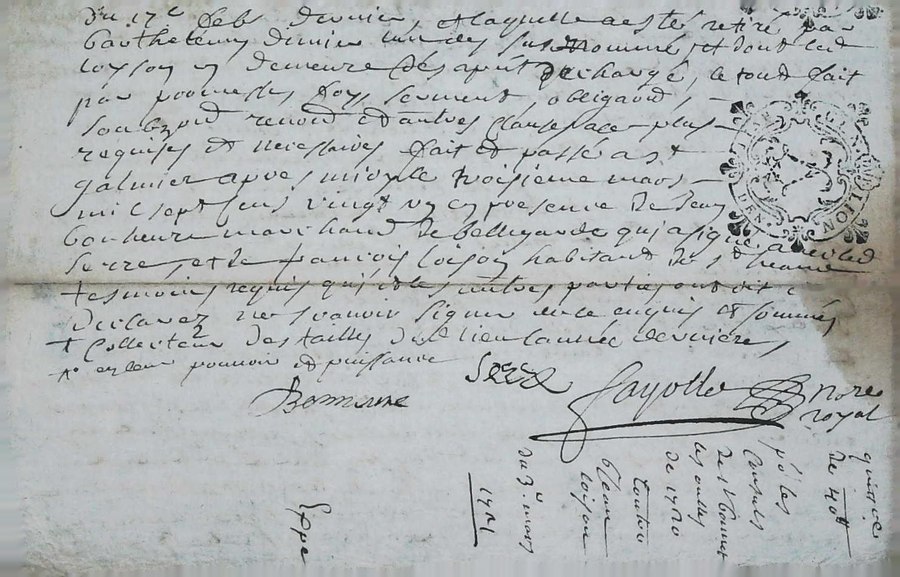 du 17e feb. dernier, et laquelle a estes retiré par
barthelemy dimier lun des susnommé, et dont led
loyson en demeure des apnt dechargé, le tout fait
par promesses, foy, serment, obligaons,
soubzons renons et autres clauses a ce plus
requises et necessaires fait et passé a st
galmier apres midy le troisieme mars
mil sept cens vingt un en presence de Jean
bonheure marchand de bellegarde qui a signé avec led
Serre, et de francois loison habitant de st heand
tesmoins requis qui et les autres parties ont dit et
declarez ne scavoir signer de ce enquis et sommés
+ Collecteur des tailles dud lieu lannée derniere,
pouvoir et puissance
Bonneure
Serre
Fayolle
nore
royal
quittce
de 40lt
pr les
Consuls
de st bonnet
les oulles
de 1720
Contre
loison
du 3e mars
1721
Expe
GEN DE LION